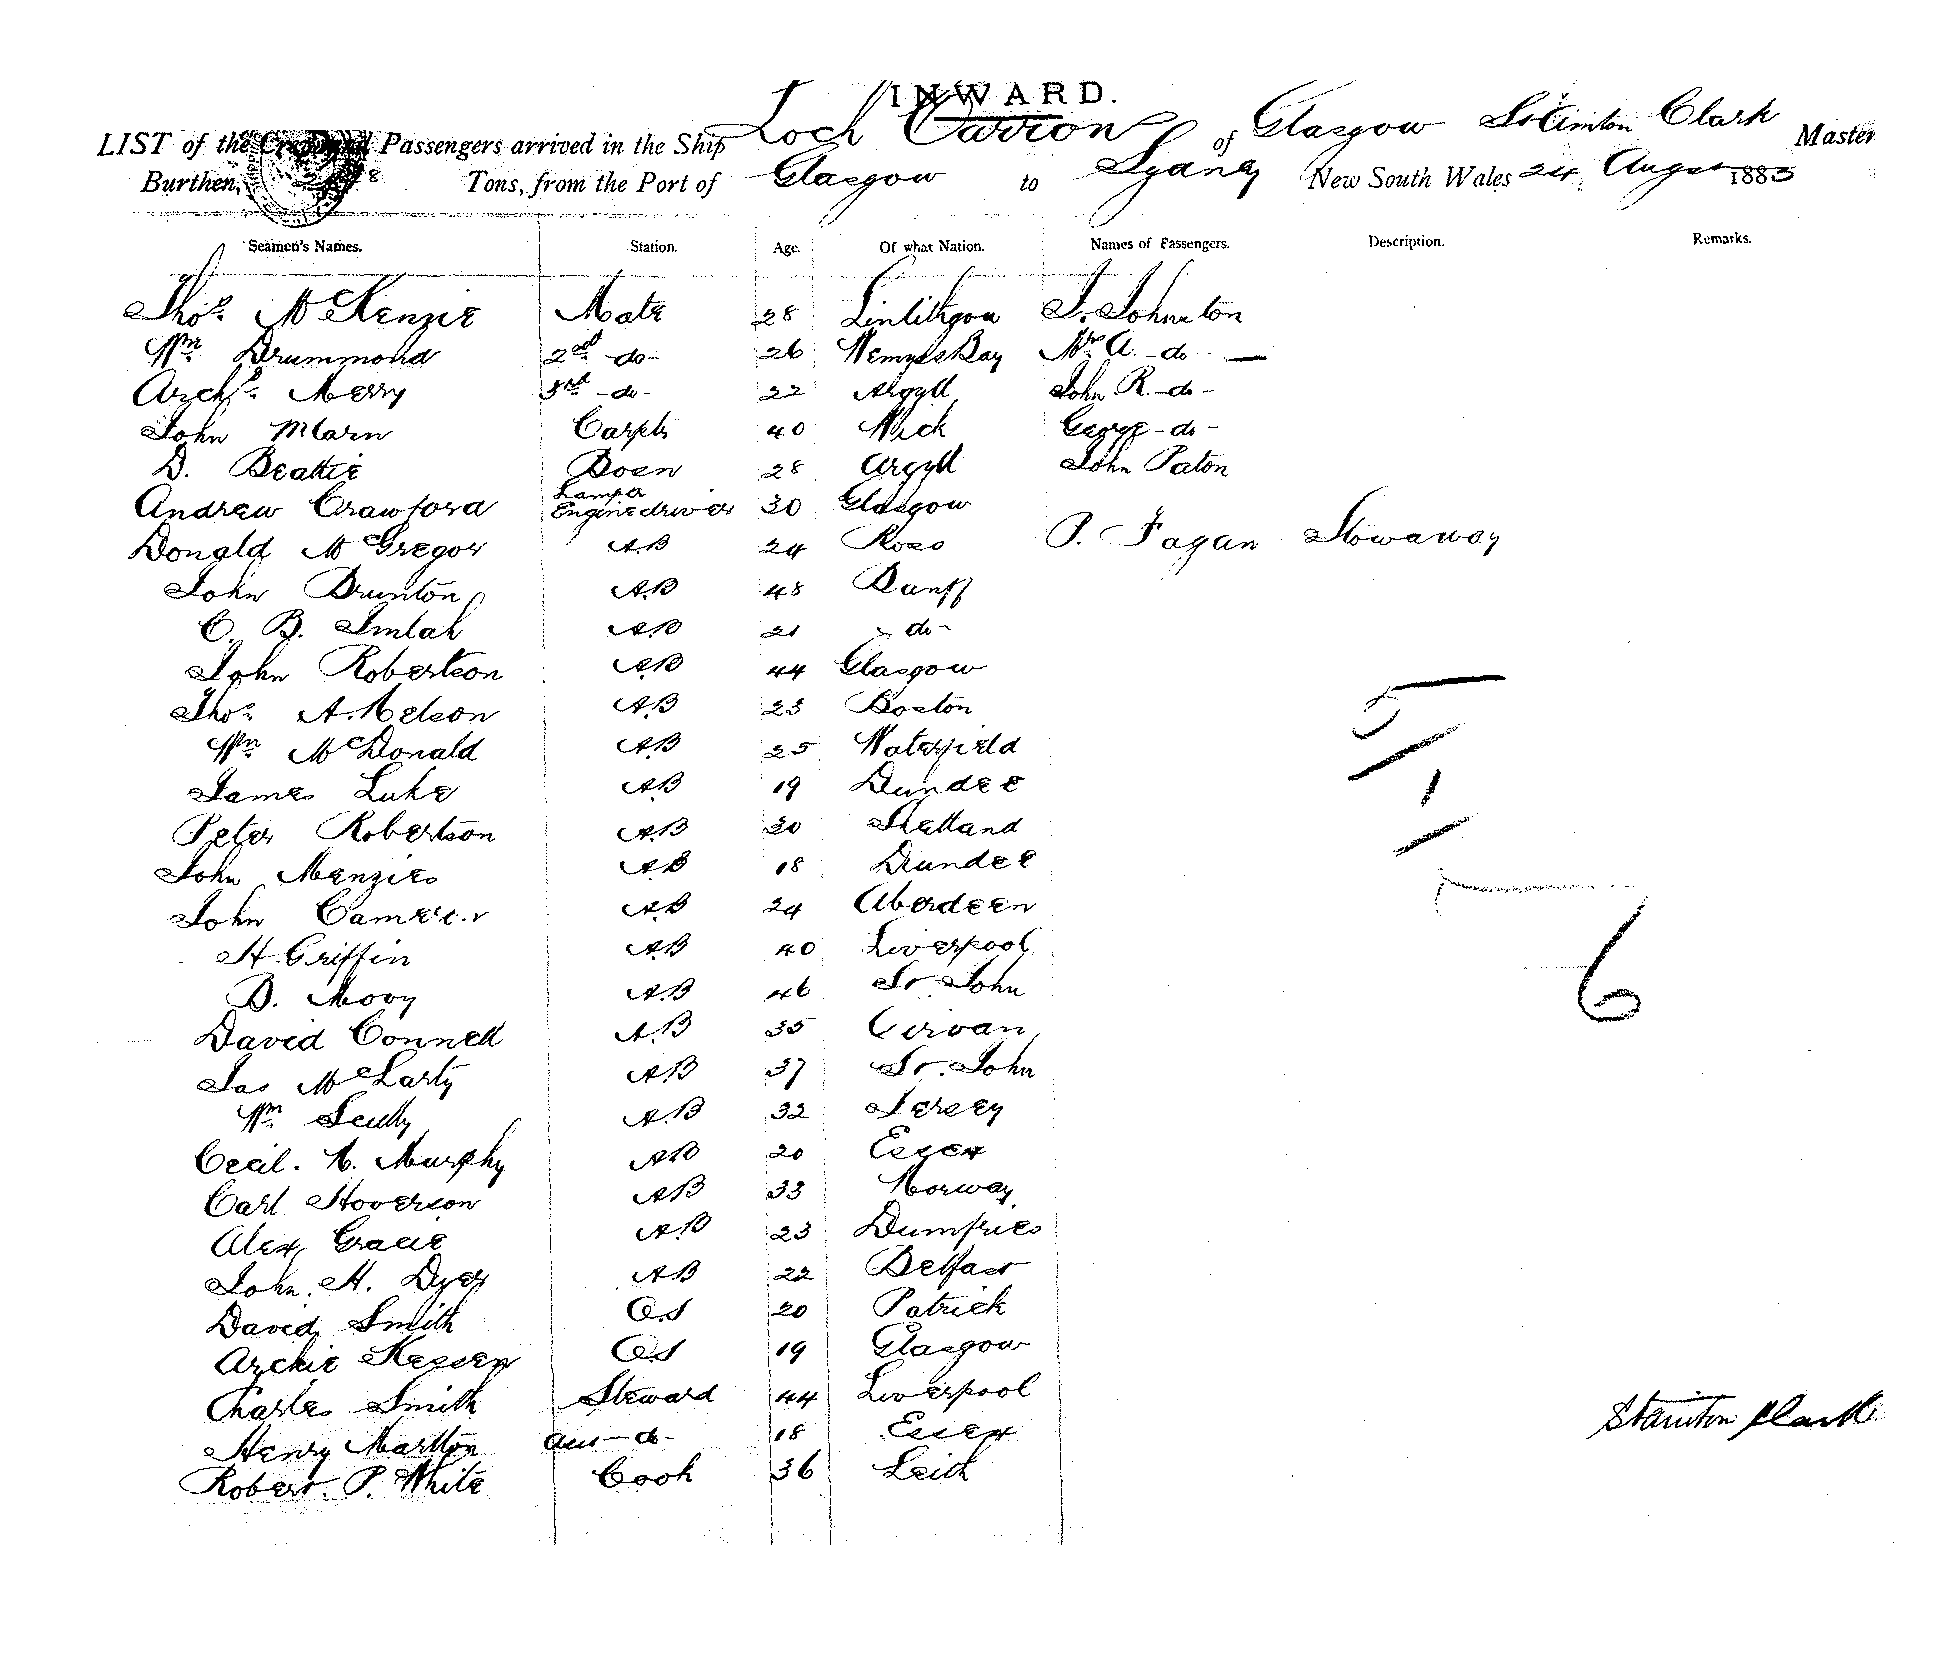 INWARD.
LIST of the Crew and Passengers arrived in the Ship Loch Carron of Glasgow Stainton Clark Master
Burthen, Tons, from the Port of Glasgow to Sydney New South Wales 24 August 1883
Seamen's Names. Station. Age. Of what Nation. Names of Passengers. Description. Remarks.
Thos. McKenzie Mate 28 Linlithgow J. Johnston
Wm Drummond 2nd -do- 26 Wemyss Bay Mrs A. -do-
Archd. Merry 3rd -do- 22 Argyll John R. -do-
John Marn Carptr 40 Wick George -do-
D. Beattie Bosn 28 Argyll John Paton
Andrew Crawford Lamps Enginedriver 30 Glasgow
Donald McGregor AB 24 Ross P. Fagan Stowaway
John Brunton AB 48 Banff
C. B. Imlah AB 21 -do-
John Robertson AB 44 Glasgow
Thos. A. Nelson AB 23 Boston
Wm McDonald AB 25 Waterfield
James Luke AB 19 Dundee
Peter Robertson AB 30 Shetland
John Menzies AB 18 Dundee
John Cameron AB 24 Aberdeen
H. Griffin AB 40 Liverpool
D. Mooy AB 46 St. John
David Connell AB 35 Girvan
Jas McLarty AB 37 St. John
Wm Scully AB 32 Jersey
Cecil. N. Murphy AB 20 Essex
Carl Hoverson AB 33 Norway
Alex Gracie AB 23 Dumfries
John. H. Dyer AB 22 Belfast
David Smith O.S 20 Patrick
Archie Kessen O.S 19 Glasgow
Charles Smith Steward 44 Liverpool
Henry Marlton Asst -do- 18 Essex
Robert. P. White Cook 36 Leith
5
1
6
Stainton Clark